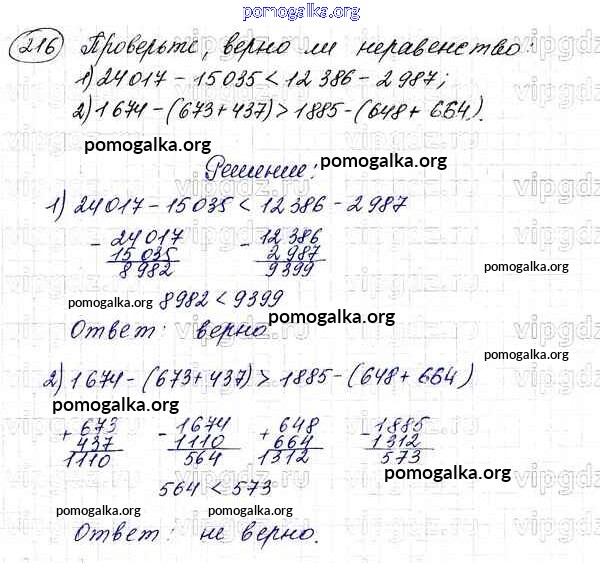 pomogalka.org
216 Проверьте, верно ли неравенство:
1) 24 017 - 15 035 < 12 386 - 2 987;
2) 1 674 - (673 + 437) > 1885 - (648 + 664).
pomogalka.org
Решение:
pomogalka.org
1) 24 017 - 15 035 < 12 386 - 2 987
- 24 017 - 12 386
15 035 2 987
8 982 9399
pomogalka.org
pomogalka.org 8982 < 9399
pomogalka.org
Ответ: верно
pomogalka.org
2) 1 674 - (673 + 437) > 1 885 - (648 + 664)
pomogalka.org
+ 673 - 1674 + 648 - 1885
437 1110 664 1312
1110 564 1312 573
pomogalka.org
564 < 573
pomogalka.org pomogalka.org
Ответ: не верно.
pomogalka.org
vipgdz.ru